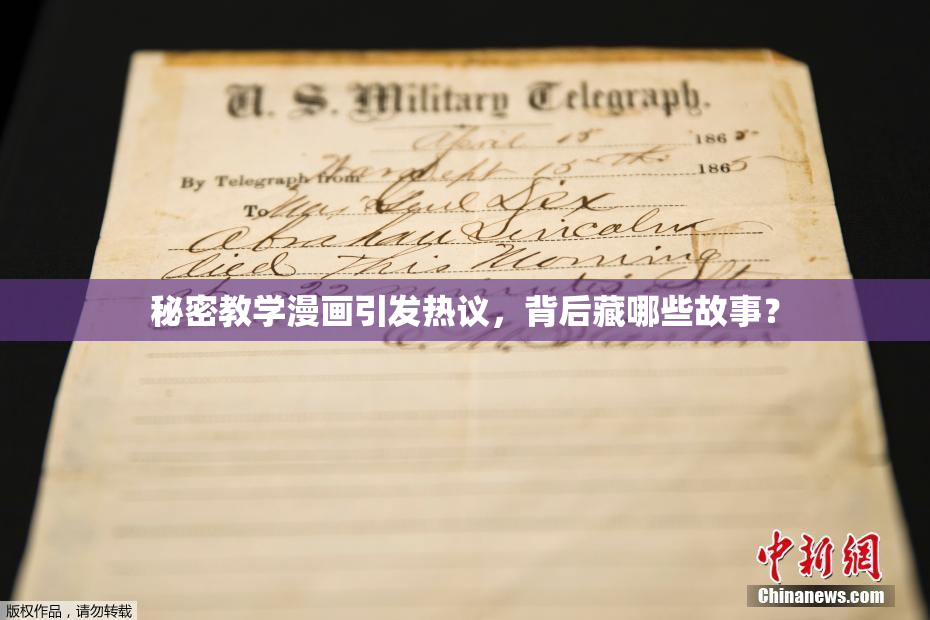 U. S. Military Telegraph.
April 15 1865
By Telegraph from War Dept 15th 1865
To Maj Genl Dix
Abraham Lincoln
died This Morning
22 minutes after
秘密教学漫画引发热议，背后藏哪些故事？
E. M. Stanton
中新网
Chinanews.com
版权作品，请勿转载